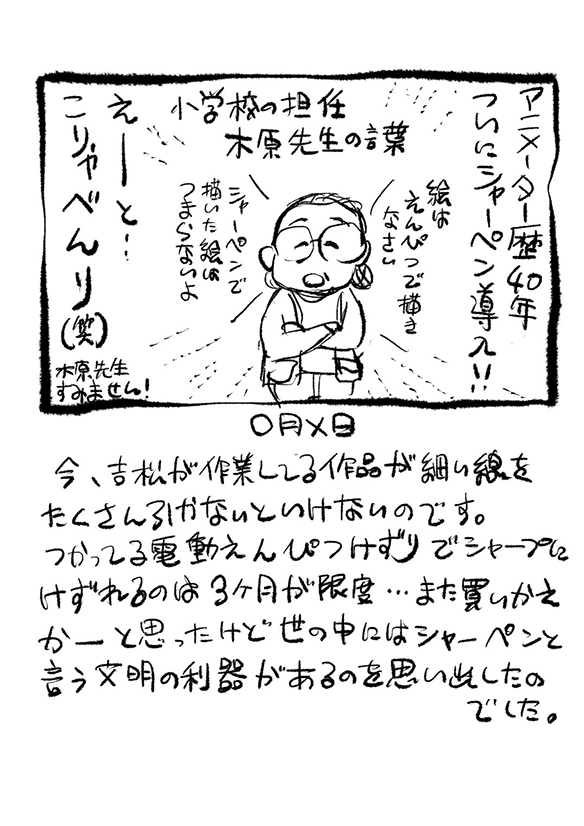 アニメーター歴40年
ついにシャーペン導入!!
小学校の担任
木原先生の言葉
絵は
えんぴつで描き
なさい
シャーペンで
描いた絵は
つまらないよ
えーーと…
こりゃべんり(笑)
木原先生
すみません!
〇月×日
今、吉松が作業してる作品が細い線を
たくさん引かないといけないのです。
つかってる電動えんぴつけずりでシャープに
けずれるのは3ヶ月が限度…また買いかえ
かーと思ったけど世の中にはシャーペンと
言う文明の利器があるのを思い出したの
でした。